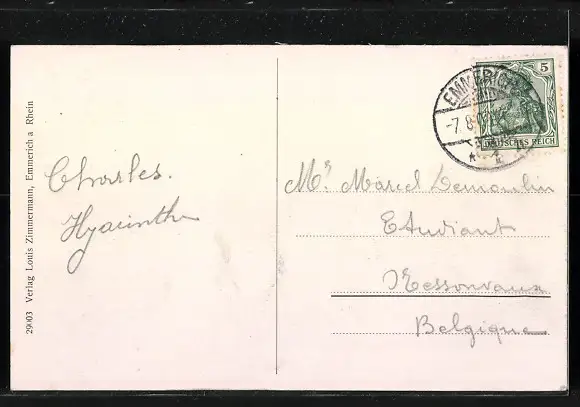 29003 Verlag Louis Zimmermann, Emmerich a Rhein
Charles.
Hyacinthe
5
DEUTSCHES REICH
EMMERICH
-7.8.
* 1
Mr. Marcel Demoulin
Etudiant
Nessonvaux
Belgique